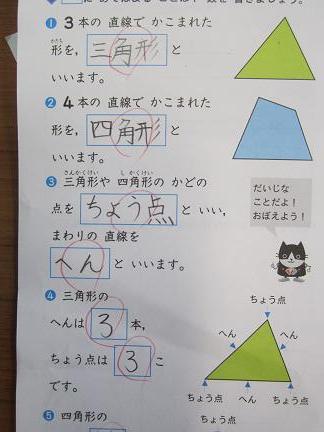 ❶ 3本の 直線で かこまれた
形を、三角形 と
いいます。
❷ 4本の 直線で かこまれた
形を、四角形 と
いいます。
❸ 三角形や 四角形の かどの
点を ちょう点 と いい、
まわりの 直線を
へん と いいます。
だいじな
ことだよ!
おぼえよう!
❹ 三角形の
へんは 3 本、
ちょう点は 3 こ
です。
ちょう点
へん
へん
ちょう点
へん
ちょう点
❺ 四角形の
ちょう点